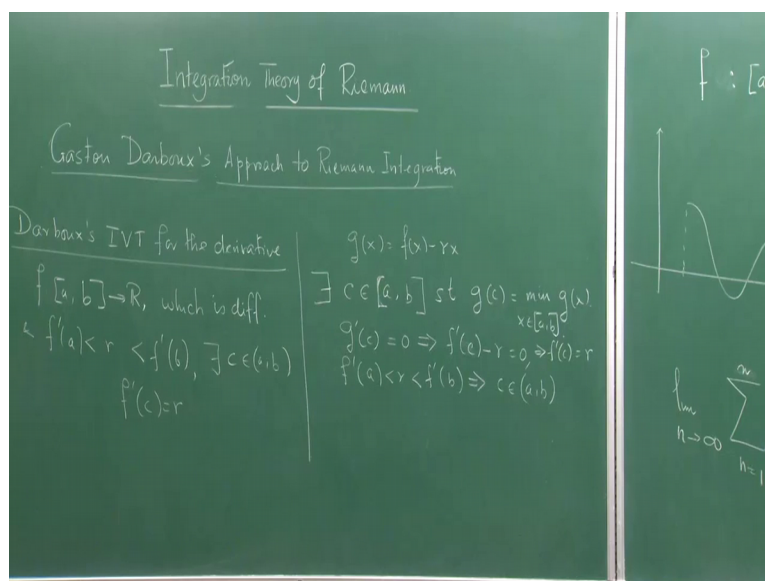 Integration Theory of Riemann
Gaston Darboux's Approach to Riemann Integration
Darboux's IVT for the derivative
f [a, b] → R, which is diff.
& f'(a) < r < f'(b), ∃ c ∈ (a, b)
f'(c) = r
g(x) = f(x) - rx
∃ c ∈ [a, b] st g(c) = min g(x).
x ∈ [a, b]
g'(c) = 0 ⇒ f'(c) - r = 0, ⇒ f'(c) = r
f'(a) < r < f'(b) ⇒ c ∈ (a, b)
f : [a
lim ∑
n → ∞
n = 1